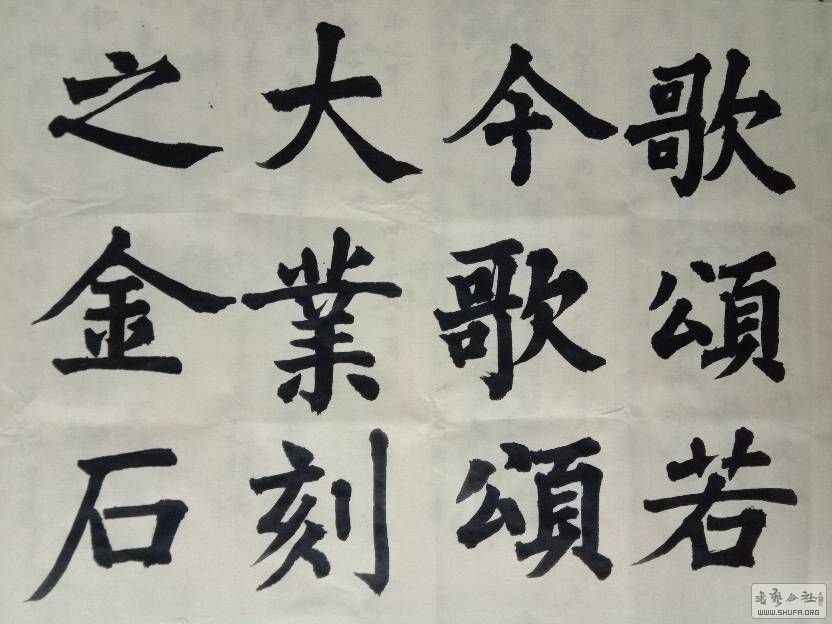 歌頌若
今歌頌
大業刻
之金石
WWW.SHUFA.ORG